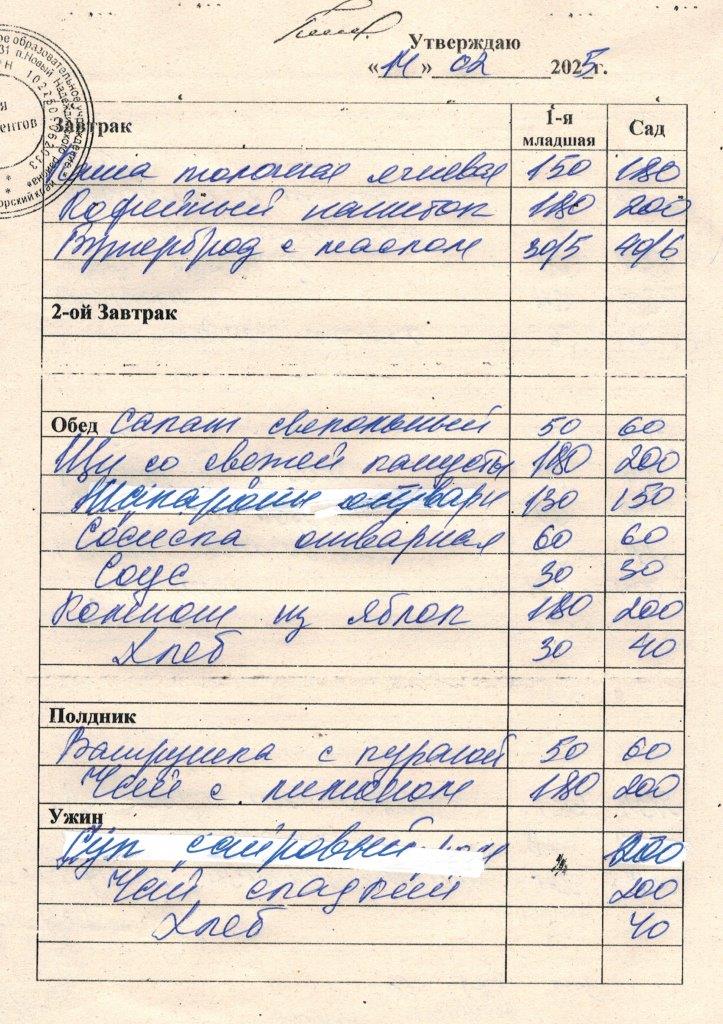 Утверждаю
«14» 02 2025г.
Завтрак 1-я младшая Сад
Каша молочная ячневая 150 180
Кофейный напиток 180 200
Бутерброд с маслом 30/5 40/6
2-ой Завтрак
Обед Салат свекольный 50 60
Щи со свежей капусты 180 200
Макароны отварн 130 150
Сосиска отварная 60 60
Соус 30 30
Компот из яблок 180 200
Хлеб 30 40
Полдник
Ватрушка с курагой 50 60
Чай с лимоном 180 200
Ужин
Суп 200
Чай сладкий 200
Хлеб 40